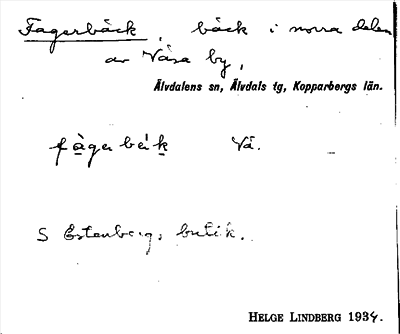 Fagerbäck, bäck i norra delen
av Våsa by,
Älvdalens sn, Älvdals tg, Kopparbergs län.
fàgerbèk Vå.
S Estenbergs butik.
HELGE LINDBERG 1934.